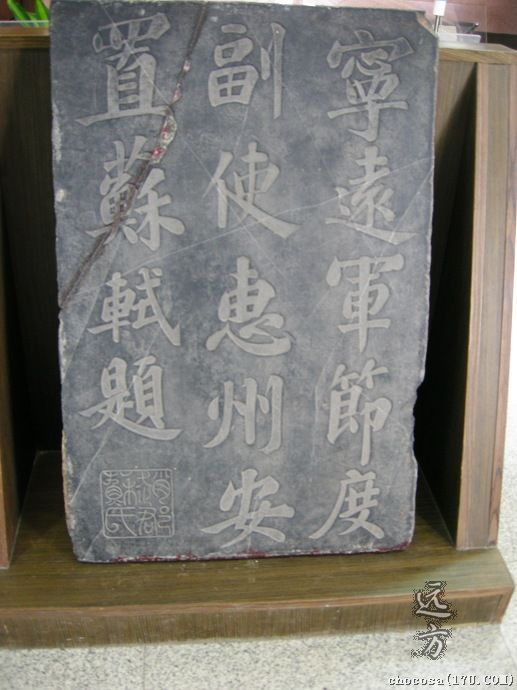 寧遠軍節度
副使惠州安
置蘇軾題
远方
chocosa(17U.COM)